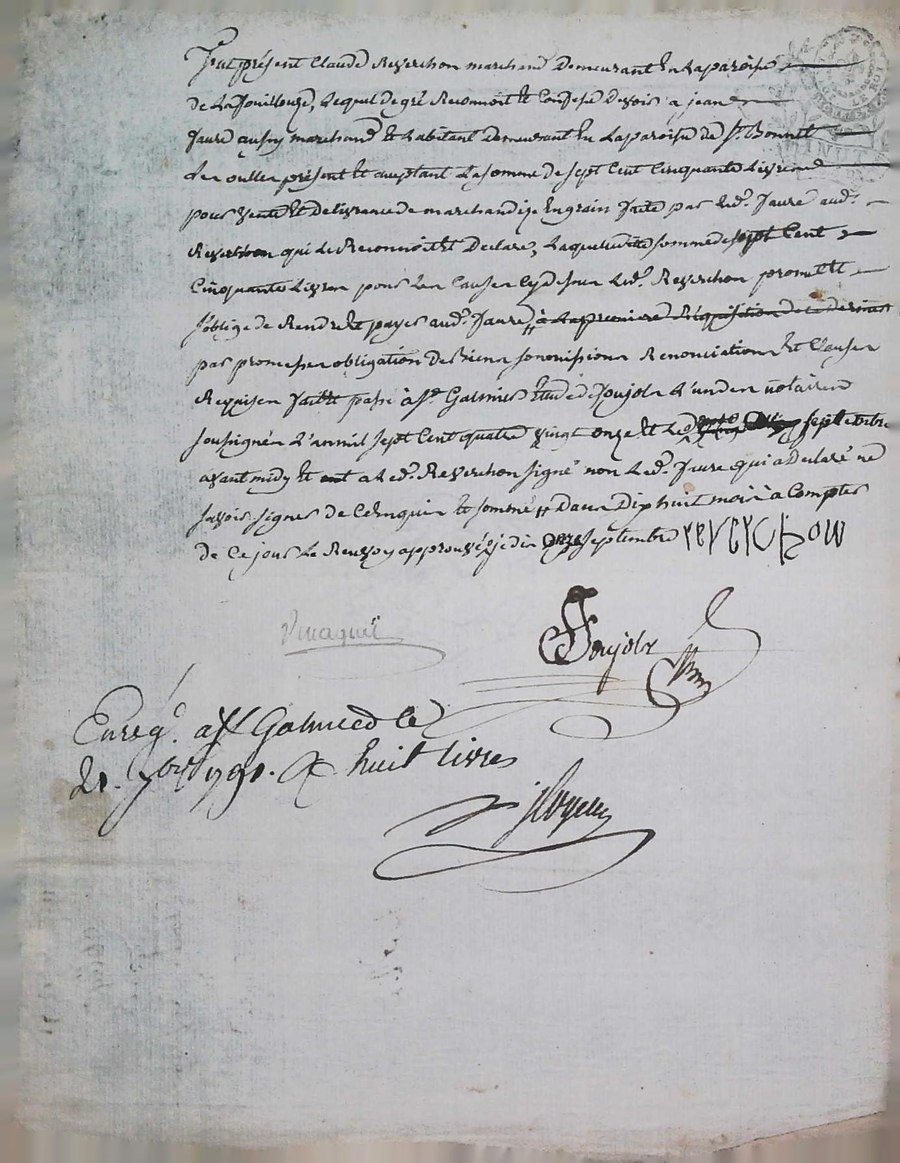 Fut présent Claude Reverchon marchand demeurant en la paroisse
de La fouillouze, Lequel de gré Reconnoit et Confesse devoir a jean
faure aussy marchand et habitant demeurant en la paroisse de St. Bonnet
Les oulles présent et acceptant La somme de sept Cent Cinquante Livres
pour vente et délivrance de marchandise en grain faite par led. faure aud.
Reverchon qui le Reconnoit et Declare, Laquelle somme de sept Cent
Cinquante Livres pour les Causes cy dessus led. Reverchon promet et
s'oblige de Rendre et payer aud. faure, a la premiere Réquisition
par promesses obligation de biens soumissions Renonciations et Clauses
Requises fait et passé à St. Galmier Etude de Joujols L'un des notaires
soussignés L'an mil sept Cent quatre vingt onze et Le septembre
avant midy et a led. Reverchon signé non led. faure qui a déclaré ne
savoir signer de Ce enquis et sommé dans Dix huit mois à Compter
de Ce jour Le Renvoy approuvé dix septembre reverchon
Joujols
Enreg. a St Galmier le
21. 7bre 1791. huit livres